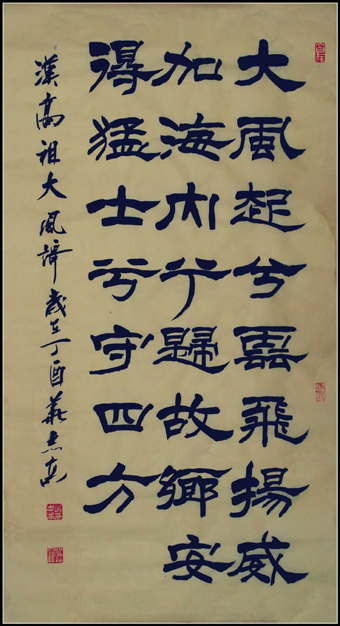 大風起兮雲飛揚威
加海内兮歸故鄉安
得猛士兮守四方
漢高祖大風歌歲在丁酉